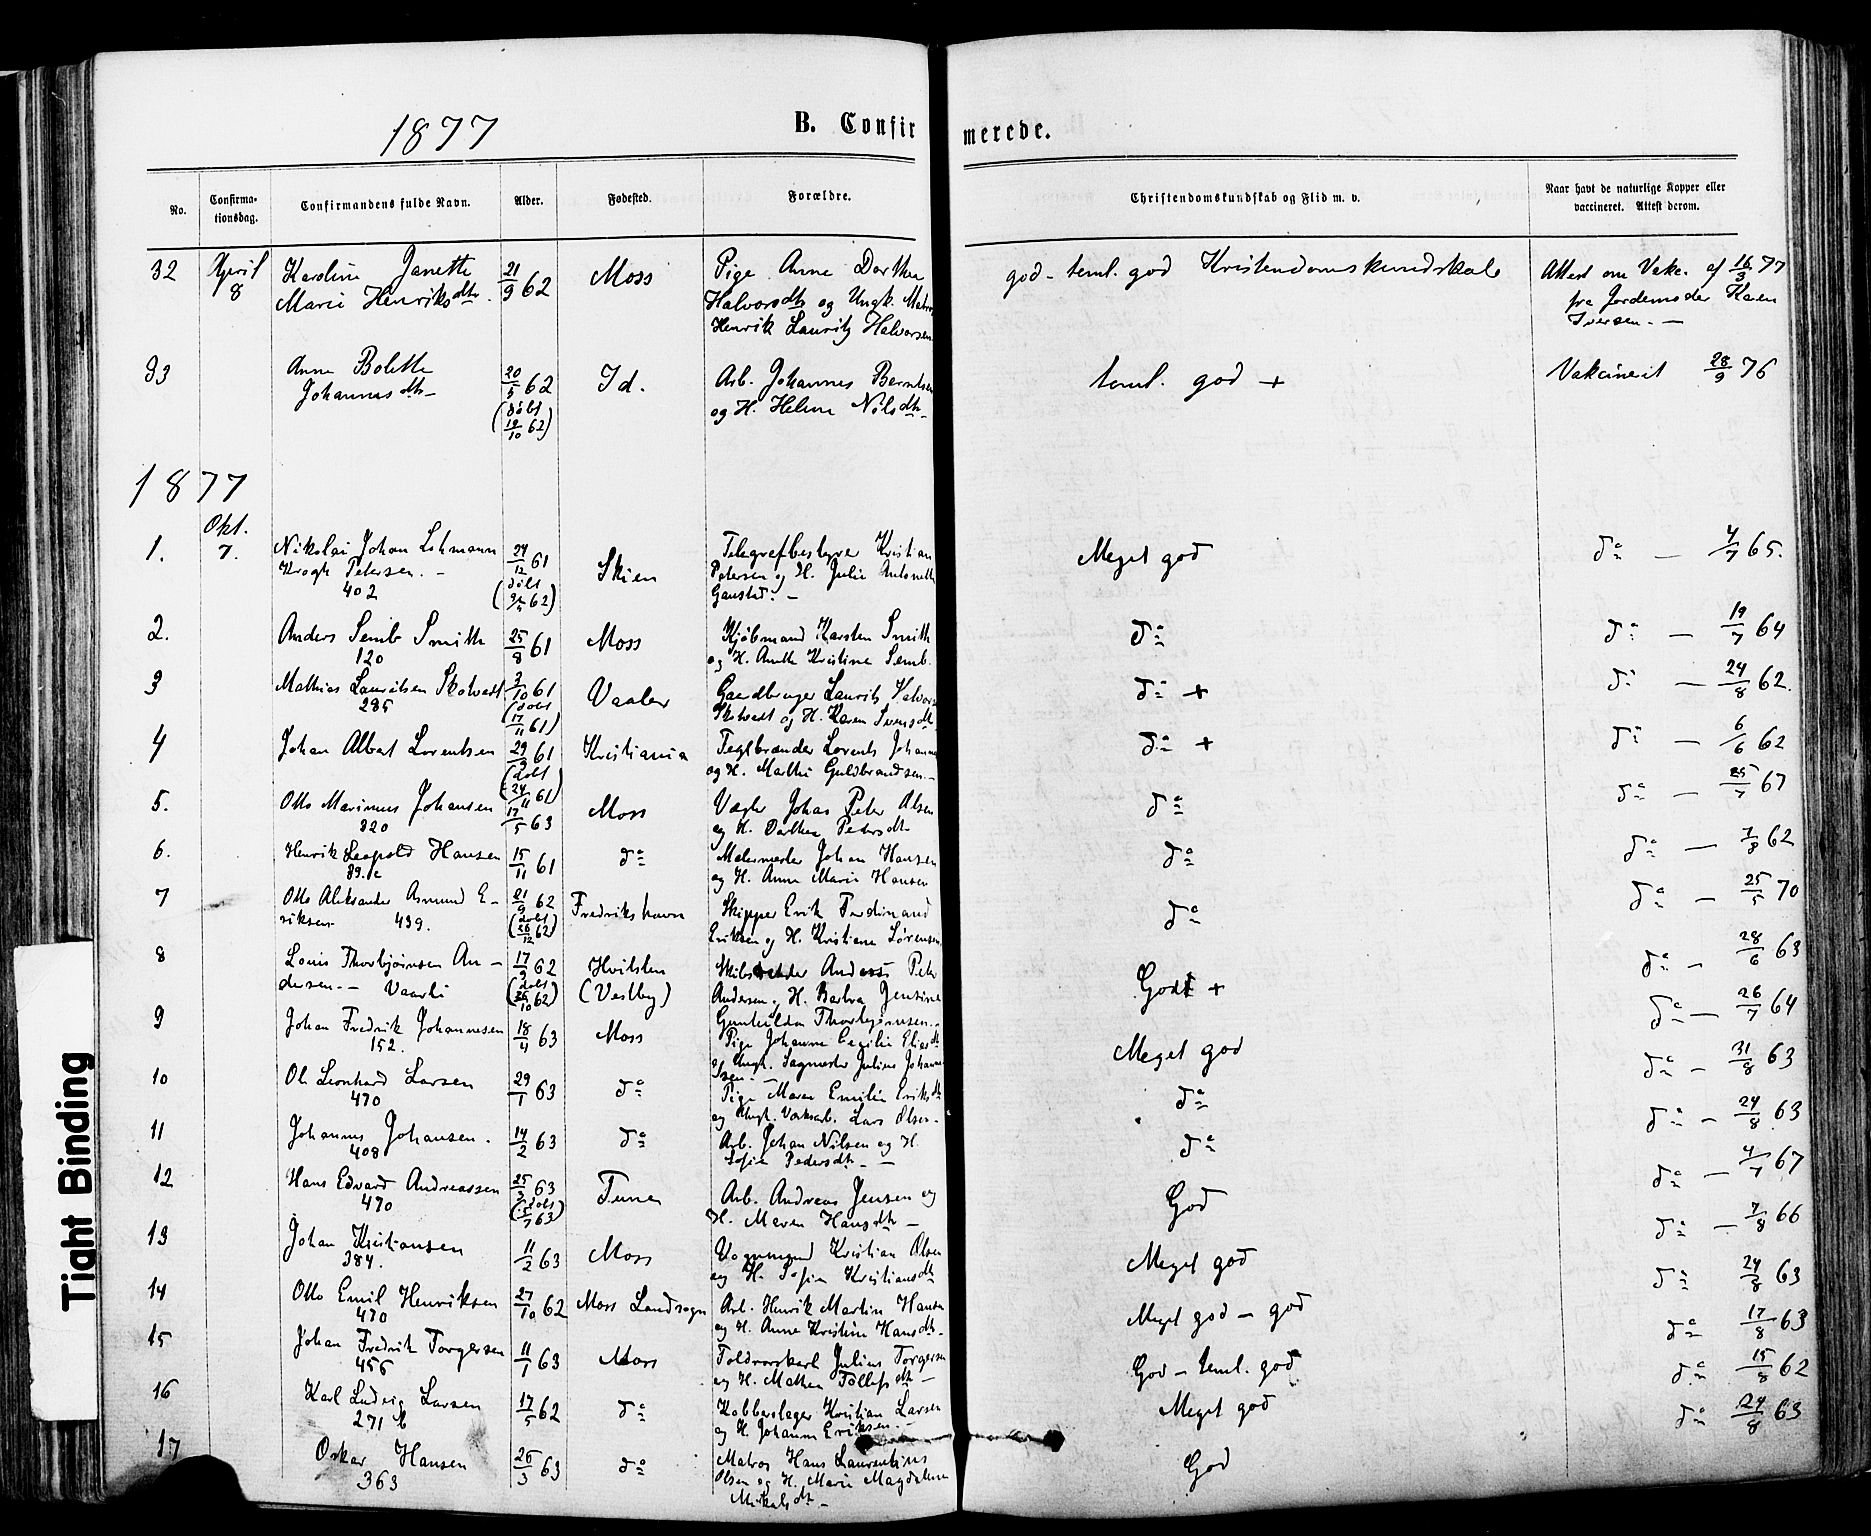 1877
B. Confirmerede.
No. Confirmationsdag. Confirmandens fulde Navn. Alder. Fødested. Forældre. Christendomskundskab og Flid m. v. Naar havt de naturlige Kopper eller vaccineret. Attest derom.
32 April 8 Karoline Janette 21/9 62 Moss Pige Anne Dorthea god - teml. god Kristendomskundskab Attest om Vakc. af 16/3 77
Marie Henriksdtr. Halvorsdtr og Ungk. Matros fra Jordemoder Karen
Henrik Lauritz Halvorsen Iversen. —
33 Anne Bolette 20/5 62 Id. Arb. Johannes Berntsen teml. god + Vakcineret 28/9 76
Johannesdtr. (døbt 19/10 62) og H. Helene Nilsdtr.
1877
1. Okt. 7. Nikolai Johan Lehmann 24/12 61 Skien Telegrafbestyrer Kristian Meget god do — 4/7 65.
Krogh Petersen. — (døbt 62) Petersen og H. Julie Antonette
402 Gaustad. —
2. Anders Semb Smith 25/8 61 Moss Kjøbmand Karsten Smith do do — 19/7 64
120 og H. Anette Kristine Semb.
3 Mathias Lauritsen Skotvedt 3/10 61 Vaaler Gaardbruger Laurits Halvors do + do — 24/8 62.
285 (døbt 17/11 61) Skotvedt og H. Karen Svensdtr
4 Johan Albert Lorentsen 29/9 61 Kristiania Teglbrænder Lorents Johanne do + do — 6/6 62
(døbt 24/11 61) og H. Marthe Guldbrandsen. —
5. Otto Marinus Johansen 17/5 63 Moss Vægter Johan Peter Olsen do do — 25/7 67
320 og H. Dorthea Petersdtr
6. Henrik Leopold Hansen 15/11 61 do Malermester Johan Hansen do do — 7/8 62
89. c og H. Anne Marie Hansen
7 Otto Aleksander Asmund E- 21/9 62 Fredrikshavn Skipper Erik Ferdinand do do — 25/5 70
riksen 439. (døbt 26/12 62) Eriksen og H. Kristiane Sørensen
8 Louis Thorbjørnsen An- 17/9 62 Hvitsten Skibsreder Anders Peter Godt + do — 28/6 63
dersen. — Vaarli (døbt 26/10 62) (Vestby) Andersen og H. Barbra Jensine
Gunhilda Thorbjørnsen. —
9 Johan Fredrik Johannesen 18/4 63 Moss Pige Johanne Cecilie Eliasdtr Meget god do — 26/7 64
152. og Ungk. Sagmester Julius Johanne
sen. —
10 Ole Leonhard Larsen 29/1 63 do Pige Maren Emilie Eriksdtr do do — 31/8 63
470 og Ungk. Værksarb. Lars Olsen. —
11 Johannes Johansen. 14/2 63 do Arb. Johan Nilsen og H. do do — 24/8 63
408 Sofie Pedersdtr. —
12 Hans Edvard Andreassen 25/3 63 Tune Arb. Andreas Jensen og God do — 4/7 67
470 (døbt 63) H. Maren Hansdtr —
13 Johan Kristiansen 11/2 63 Moss Vognmand Kristian Olsen Meget god do — 7/8 66
384. og H. Sofie Kristiansdtr
14 Otto Emil Henriksen 27/10 62 Moss Landsogn Arb. Henrik Martin Hansen Meget god - god do 24/8 63
470 og H. Anne Kristine Hansdtr.
15 Johan Fredrik Torgersen 11/1 63 Moss Toldrorskarl Julius Torgersen God - teml. god do 17/8 63
456 og H. Mathea Tollefsdtr —
16 Karl Ludvig Larsen 17/5 62 do Kobberslager Kristian Larsen Meget god do 15/8 62
271 b og H. Johanne Eriksen. —
17 Oskar Hansen 26/3 63 do Matros Hans Laurentius God do 24/8 63
363 Olsen og H. Marie Magdalene
Mikalsdtr —
Tight Binding